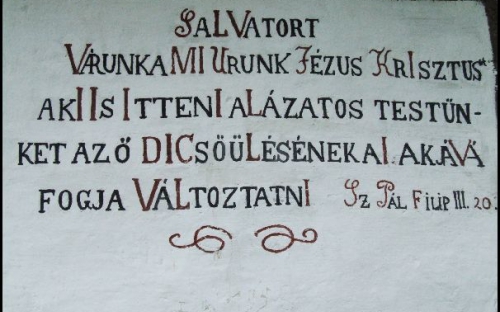 SALVATORT
VÁRUNKA MI URUNK JÉZUS KRISZTUS
AKI IS ITTENI ALÁZATOS TESTÜN-
KET AZ Ő DICSÖÜLÉSÉNEK ALAKÁVÁ
FOGJA VÁLTOZTATNI SZ PÁL FILIP III. 20.